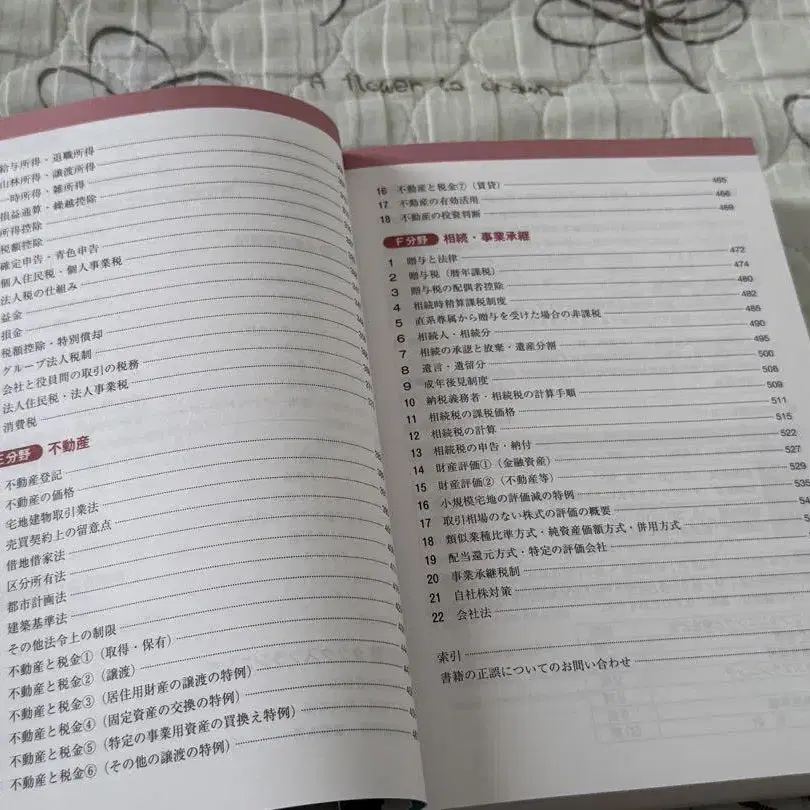 A flower to drawn
給与所得・退職所得
山林所得・譲渡所得
一時所得・雑所得
損益通算・繰越控除
所得控除
税額控除
確定申告・青色申告
個人住民税・個人事業税
法人税の仕組み
益金
損金
税額控除・特別償却
グループ法人税制
会社と役員間の取引の税務
法人住民税・法人事業税
消費税
E分野 不動産
不動産登記
不動産の価格
宅地建物取引業法
売買契約上の留意点
借地借家法
区分所有法
都市計画法
建築基準法
その他法令上の制限
不動産と税金①(取得・保有)
不動産と税金②(譲渡)
不動産と税金③(居住用財産の譲渡の特例)
不動産と税金④(固定資産の交換の特例)
不動産と税金⑤(特定の事業用資産の買換え特例)
不動産と税金⑥(その他の譲渡の特例)
16 不動産と税金⑦(賃貸) 465
17 不動産の有効活用 466
18 不動産の投資判断 469
F分野 相続・事業承継
1 贈与と法律 472
2 贈与税(暦年課税) 474
3 贈与税の配偶者控除 480
4 相続時精算課税制度 482
5 直系尊属から贈与を受けた場合の非課税 485
6 相続人・相続分 490
7 相続の承認と放棄・遺産分割 495
8 遺言・遺留分 500
9 成年後見制度 508
10 納税義務者・相続税の計算手順 509
11 相続税の課税価格 511
12 相続税の計算 515
13 相続税の申告・納付 522
14 財産評価①(金融資産) 527
15 財産評価②(不動産等) 529
16 小規模宅地の評価減の特例 535
17 取引相場のない株式の評価の概要
18 類似業種比準方式・純資産価額方式・併用方式
19 配当還元方式・特定の評価会社
20 事業承継税制
21 自社株対策
22 会社法
索引
書籍の正誤についてのお問い合わせ